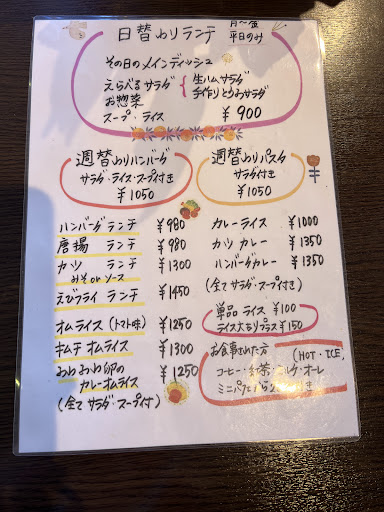 日替わりランチ 月〜金 平日のみ
その日のメインディッシュ
えらべるサラダ { 生ハムサラダ
お惣菜 手作りとうふサラダ
スープ・ライス ¥900
週替わりハンバーグ
サラダ・ライス・スープ付き
¥1050
週替わりパスタ
サラダ付き
¥1050
ハンバーグ ランチ ¥980
唐揚 ランチ ¥980
カツ ランチ ¥1300
みそ or ソース
えびフライ ランチ ¥1450
オムライス (トマト味) ¥1250
キムチ オムライス ¥1300
ふわふわ卵の
カレーオムライス ¥1250
(全て サラダ・スープ付)
カレーライス ¥1000
カツ カレー ¥1350
ハンバーグカレー ¥1350
(全て サラダ・スープ付き)
単品 ライス ¥100
ライス大もりプラス ¥150
お食事された方 (HOT・ICE)
コーヒー・紅茶・ ・オーレ
ミニ 付き